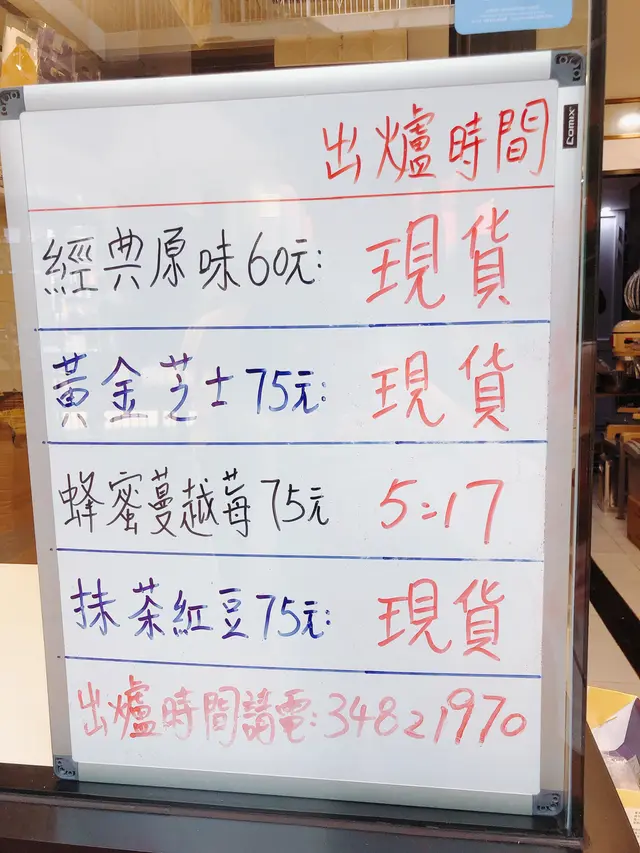 出爐時間
經典原味60元: 現貨
黃金芝士75元: 現貨
蜂蜜蔓越莓75元 5:17
抹茶紅豆75元: 現貨
出爐時間請電:34821970
COMIX